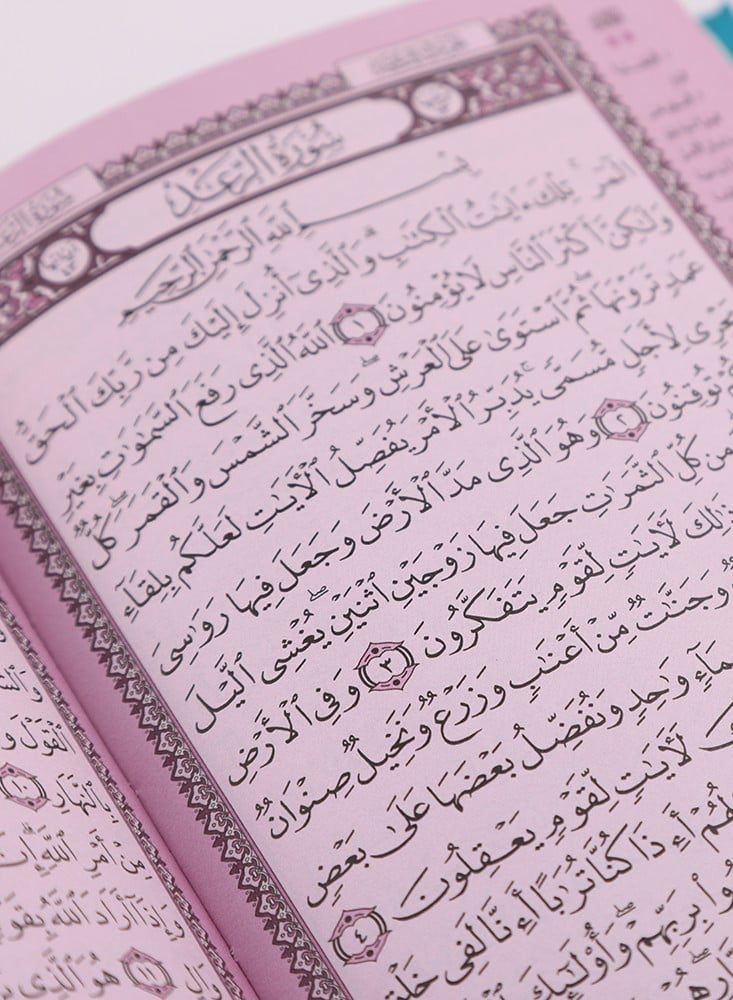 سُورَةُ الرَّعْدِ
بِسْمِ ٱللَّهِ ٱلرَّحْمَٰنِ ٱلرَّحِيمِ
الٓمٓرۚ تِلْكَ ءَايَٰتُ ٱلْكِتَٰبِۗ وَٱلَّذِىٓ أُنزِلَ إِلَيْكَ مِن رَّبِّكَ ٱلْحَقُّ
وَلَٰكِنَّ أَكْثَرَ ٱلنَّاسِ لَا يُؤْمِنُونَ ١ ٱللَّهُ ٱلَّذِى رَفَعَ ٱلسَّمَٰوَٰتِ بِغَيْرِ
عَمَدٍ تَرَوْنَهَاۖ ثُمَّ ٱسْتَوَىٰ عَلَى ٱلْعَرْشِۖ وَسَخَّرَ ٱلشَّمْسَ وَٱلْقَمَرَۖ كُلٌّ
لِأَجَلٍ مُّسَمًّىۚ يُدَبِّرُ ٱلْأَمْرَ يُفَصِّلُ ٱلْءَايَٰتِ لَعَلَّكُم بِلِقَآءِ
تُوقِنُونَ ٢ وَهُوَ ٱلَّذِى مَدَّ ٱلْأَرْضَ وَجَعَلَ فِيهَا رَوَٰسِىَ
مِن كُلِّ ٱلثَّمَرَٰتِ جَعَلَ فِيهَا زَوْجَيْنِ ٱثْنَيْنِۖ يُغْشِى ٱلَّيْلَ
ذَٰلِكَ لَءَايَٰتٍ لِّقَوْمٍ يَتَفَكَّرُونَ ٣ وَفِى ٱلْأَرْضِ
وَجَنَّٰتٌ مِّنْ أَعْنَٰبٍ وَزَرْعٌ وَنَخِيلٌ صِنْوَانٌ
وَٰحِدٍ وَنُفَضِّلُ بَعْضَهَا عَلَىٰ بَعْضٍ
لَءَايَٰتٍ لِّقَوْمٍ يَعْقِلُونَ ٤
أَءِذَا كُنَّا تُرَٰبًا أَءِنَّا لَفِى خَلْقٍ
بِرَبِّهِمْۖ وَأُو۟لَٰٓئِكَ
ٱلْقَوْلَ
بِٱلنَّهَارِ ١٠
مِنْ أَمْرِ ٱللَّهِۗ
وَإِذَآ أَرَادَ ٱللَّهُ بِقَوْمٍ
١١ هُوَ ٱلَّذِى